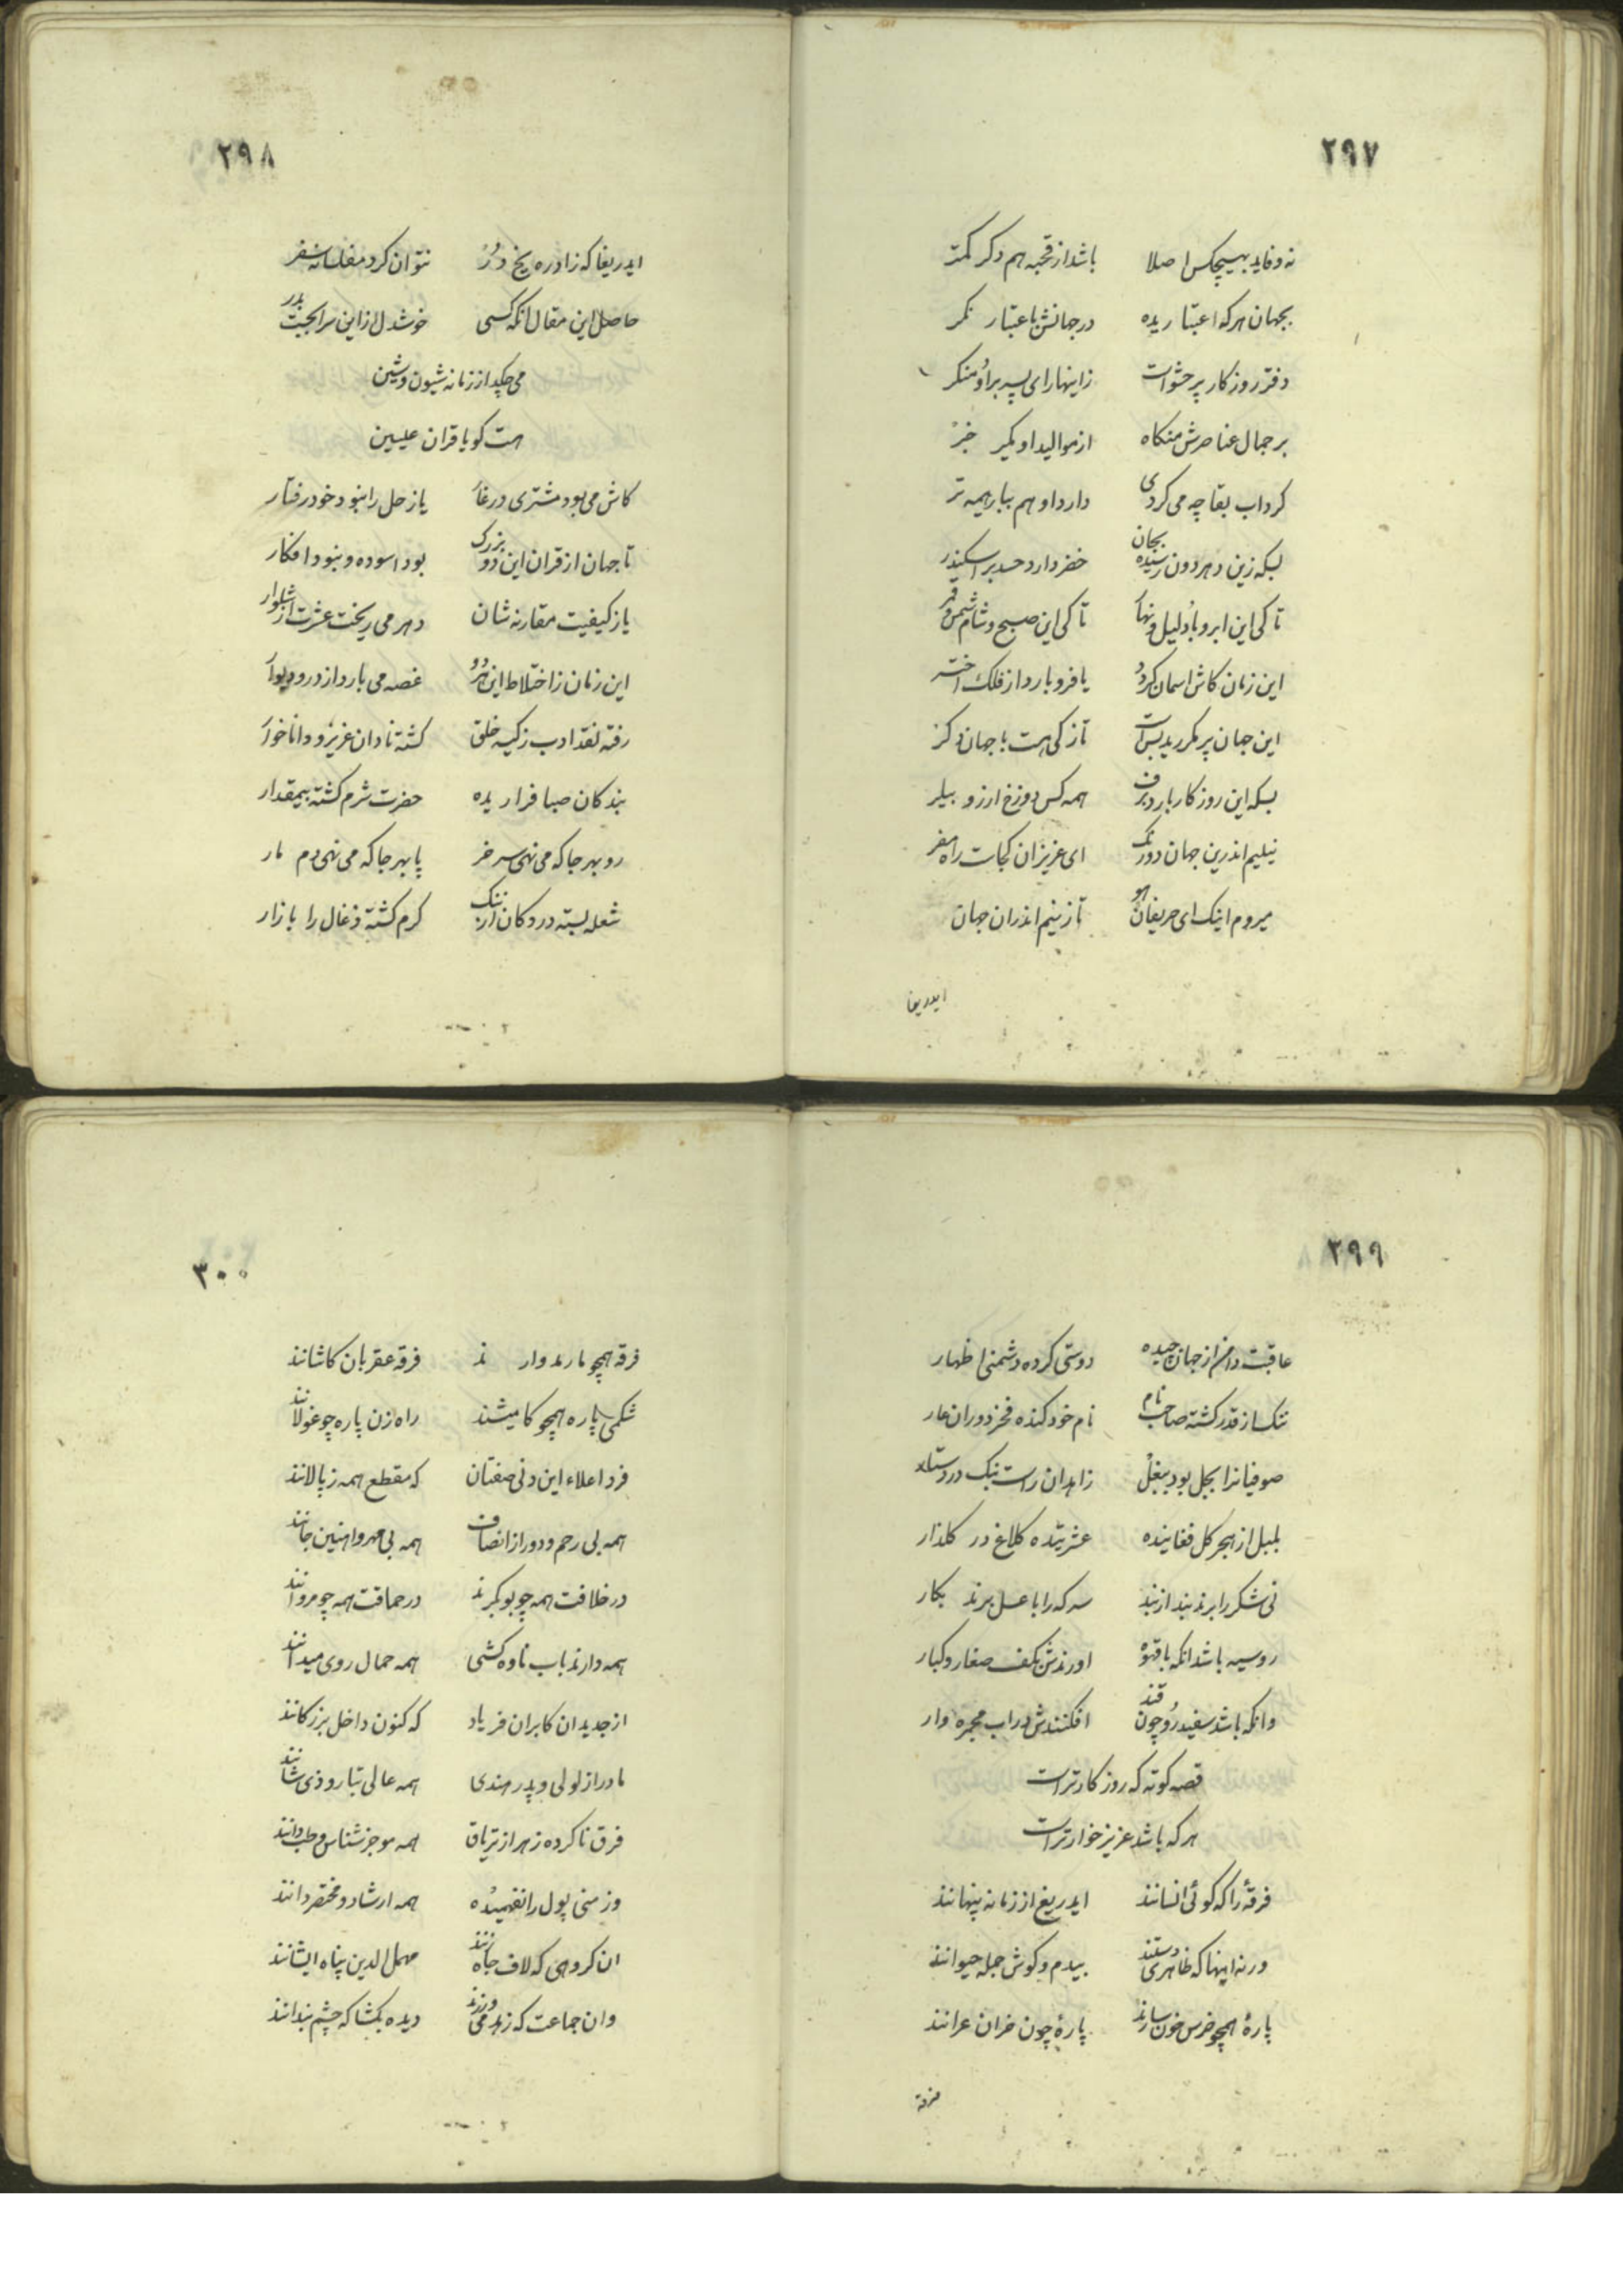 ۲۹۷
نه وفاید بهیچکس اصلا باشد از قحبه هم دکر کمتر
بجهان هرکه اعتبار یده درجهانش باعتبار نکر
دفتر روزکار پر حشو است زاینهار ای پسر براو منکر
بر جمال عناصرش منکاه از موالید او مکیر خبر
کرد اب بقا چه می کردی دارد او هم ببار همه تر
بسکه زین دهر دون رسیده بجان خضر دارد حسد بر اسکندر
تا کی این ابر و باد و لیل و نهار تا کی این صبح و شام شمس و قمر
این زمان کاش اسمان کردد یا فرو بارد از فلک اختر
این جهان پر مکرر یدست تازکی هست با جهان دکر
بسکه این روزکار بارد برف همه کس دوزخ ارزو بیلر
نیلیم اندرین جهان دورنک ای عزیزان کجاست راه مفر
میروم اینک ای حریفان هو تا زنیم اندران جهان
ایدریغا
۲۹۸
ایدریغا که زاد ره یخ دُر نتوان کرد مفلسانه سفر
حاصل این مقال انکه کسی خوشدل از این سرا نجست بدر
می چکد از زمانه شیون و شین
هست کویا قران علیین
کاش می بود مشتری در غار یا زحل را نبود خود رفتار
تا جهان از قران این دو بزرک بود اسوده و نبود افکار
یا ز کیفیت مقارنه شان دهر می ریخت عشرت از شلوار
این زمان ز اختلاط این هر دو غصه می بارد از در و دیوار
رفته نقد ادب ز کیسه خلق کشته نادان عزیز و دانا خوار
بندکان صبا فرار یده حضرت شرم کشته بیمقدار
رو بهر جا که می نهی سر خر پا بهر جا که می نهی دم مار
شعله بسته در دکان از ننک کرم کشته ذغال را بازار
۲۹۹
عاقبت دامن از جهان چیده دوستی کرده دشمنی اظهار
ننک از قدر کشته صاحب نام نام خود کنده فخر دوران عار
صوفیانرا بجل بود ببغل زاهدان راست بنک در دستار
بلبل از هجر کل فغاینده عشرتیده کلاغ در کلذار
نی شکر را برند بند از بند سرکه را با عسل برند بکار
روسیه باشد انکه با قهوه اورندش بکف صغار و کبار
وانکه باشد سفید رو چون قند افکنندش در اب مجمره وار
قصه کوته که روزکار تر است
هر که باشد عزیز خوارتر است
فرقهٔ را که کوئی انسانند ایدریغ از زمانه پنهانند
ورنه اینها که ظاهری دستند بیدم و کوش جمله حیوانند
پارهٔ همچو خرس خون سازند پارهٔ چون خران عرانند
فرقه
۳۰۰
فرقه همچو مار ند وار ند فرقه عقربان کاشانند
شکمی پاره همچو کامیشند راه زن پاره چو غولانند
فرد اعلاء این دنی صفتان که مقطع همه ز پالانند
همه بی رحم و دور از انصاف همه بی مهر و اهنین جانند
در خلافت همه چو بوبکرند در حماقت همه چو مروانند
همه دارند باب ناوه کشی همه حمال روی میدانند
از جدیدان کابران فریاد که کنون داخل بزرکانند
مادر از لولی و پدر هندی همه عالی تبار و ذی شانند
فرق ناکرده زهر از تریاق همه موجز شناس و طب دانند
وز منی پول را نفهمیده همه ارشاد و مختصر دانند
ان کروهی که لاف جاه زنند مهمل الدین پناه ایشانند
وان جماعت که زهد می ورزند دیده بکشا که چشم بندانند